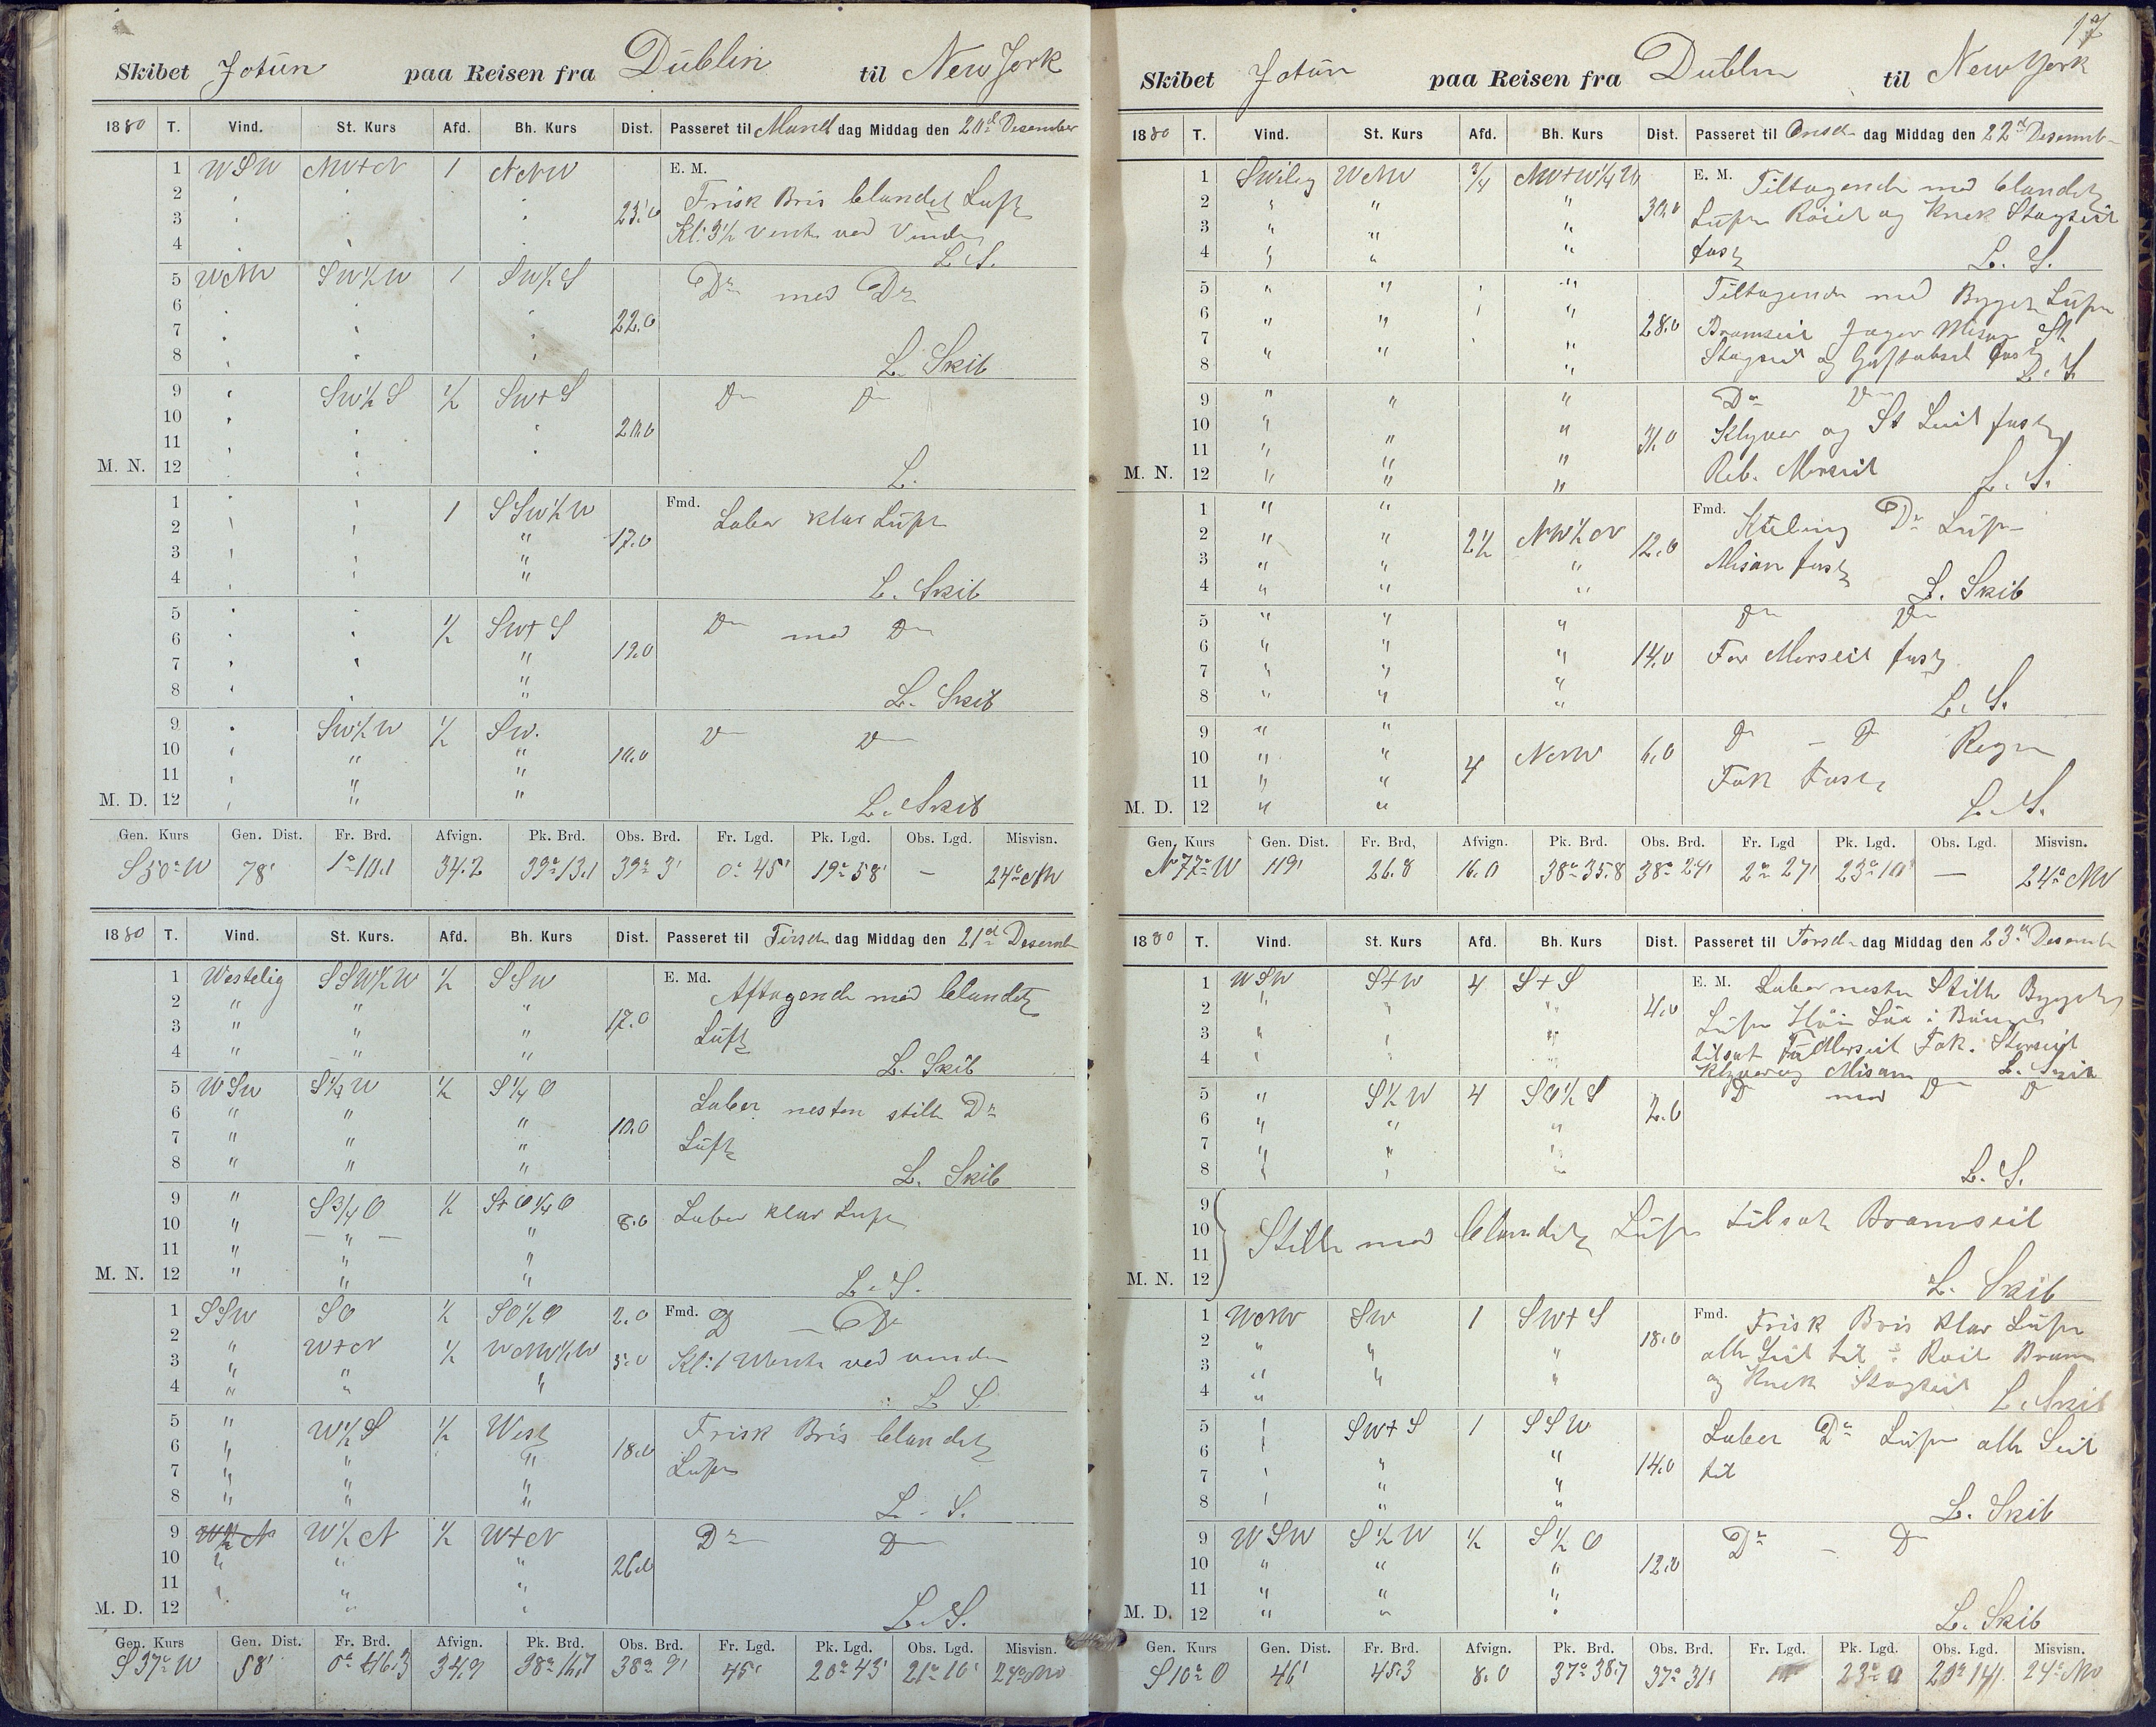 Skibet Jotun paa Reisen fra Dublin til New York
1880 T. Vind. St. Kurs Afd. Bh. Kurs Dist. Passeret til Mand dag Middag den 20d Desember
1 WSW NW+N 1 NNW E. M.
2 Frisk Bris blandet Luft
3 23.0 Kl: 3½ vendt ved Vinden
4 L. S.
5 WNW SW½W 1 SW½S Do med Do
6
7 22.0
8 L. Skib
9 SW½S ½ SW+S Do Do
10
11 20.0
M. N. 12 L.
1 1 SSW½W Fmd. Laber klar Luft
2 " 17.0
3 "
4 " L. Skib
5 ½ SW+S Do med Do
6 " 12.0
7 "
8 " L. Skib
9 SW½W ½ SW. Do Do
10 " " 10.0
11 " "
M. D. 12 " " L. Skib
Gen. Kurs Gen. Dist. Fr. Brd. Afvign. Pk. Brd. Obs. Brd. Fr. Lgd. Pk. Lgd. Obs. Lgd. Misvisn.
S50°W 78' 1°10.1 34.2 39°13.1 39° 3' 0° 45' 19° 58' — 24° NW
1880 T. Vind. St. Kurs. Afd. Bh. Kurs Dist. Passeret til Tirsdag Middag den 21d Desemb
1 Westelig SSW½W ½ SSW E. Md.
2 " " " Aftagende med blandet
3 " " " 17.0 Luft
4 " " " L. Skib
5 WSW S¼W ½ S¼O Laber nesten stille Do
6 " " " 10.0
7 " " " Luft
8 " " " L. Skib
9 " S¾O ½ S+O¼O Laber klar Luft
10 " " " 8.0
11 " " "
M. N. 12 " " " L. S.
1 SSW SO ½ SO½O 2.0 Fmd. Do — Do
2 " W+N ½ WNW½W 5.0 Kl: 1 Vendt ved vinden
3 " "
4 " " " L S
5 " W½S ½ West Frisk Bris blandet
6 " " " 18.0
7 " " " Luft
8 " " " L. S.
9 W½N W½N ½ W+N Do Do
10 " " " 26.0
11 " " "
M. D. 12 " L. S.
Gen. Kurs Gen. Dist. Fr. Brd. Afvign. Pk. Brd. Obs. Brd. Fr. Lgd. Pk. Lgd. Obs. Lgd. Misvisn.
S37°W 58' 0° 46.3 34.9 38° 16.7 38° 9' 45' 20° 43' 21° 10' 24° NW
17
Skibet Jotun paa Reisen fra Dublin til New York
1880 T. Vind. St. Kurs Afd. Bh. Kurs Dist. Passeret til Onsd dag Middag den 22d Desemb
1 SWlig WNW ¾ NW+W¼W E. M. Tiltagende med blandet
2 " " " 30.0 Luft Röiel og Knek Stagseil
3 " " "
4 " " " fast L. S.
5 " " " Tiltagende med Byget Luft
6 " " " 28.0 Bramseil Jager Misan St
7 " Stagseil og Gaftobseil fast
8 " " " L. S
9 " " " Do Do
10 " " 31.0 Klyver og St Seil fast
11 " " "
M. N. 12 " " " Reb. Merseil L. S.
1 " " Fmd. Kuling Do Luft
2 " " 2½ NW½N 12.0
3 " " " Misan fast
4 " " " L. Skib
5 " " " Do Do
6 " " " 14.0 For Merseil fast
7 " " "
8 " " " L. S.
9 " " Do — Do Regn
10 " " 4 NNW 6.0
11 " " Fok Fast
M. D. 12 " " L. S.
Gen. Kurs Gen. Dist. Fr. Brd, Afvign. Pk. Brd. Obs. Brd. Fr. Lgd Pk. Lgd. Obs. Lgd. Misvisn.
N77°W 119' 26.8 16.0 38° 35.8 38° 24' 2° 27' 23° 10' — 24° NW
1880 T. Vind. St. Kurs Afd. Bh. Kurs Dist. Passeret til Torsd dag Middag den 23d Desemb
1 WSW S+W 4 S+S E. M. Laber nesten Stille Byget
2 " " " 4.0 Luft
3 " " tilsat Merseil Fok. Storseil
4 " Klyver og Misan L. Skib
5 " S½W 4 SO½S Do med Do Do
6 " " " 2.0
7 " " "
8 L. S.
9
10 Stille med blandet Luft tilsat Bramseil
11
M. N. 12 L. Skib
1 WNW SW 1 SW+S Fmd. Frisk Bris klar Luft
2 " " " 18.0 alle Seil til Roiel Bram
3 " " " og Knek Stagseil
4 " L. Skib
5 SW+S 1 SSW Laber Do Luft alle Seil
6 " 14.0
7 " " til
8 " " L. Skib
9 WSW S½W ½ S½O Do — Do
10 " " " 12.0
11 " " "
M. D. 12 " " L. Skib
Gen. Kurs Gen. Dist. Fr. Brd. Afvign. Pk. Brd. Obs. Brd. Fr. Lgd. Pk. Lgd. Obs. Lgd. Misvisn.
S10°O 46' 45.3 8.0 37° 38.7 37° 31' 23° 0 20° 14' 24° NW